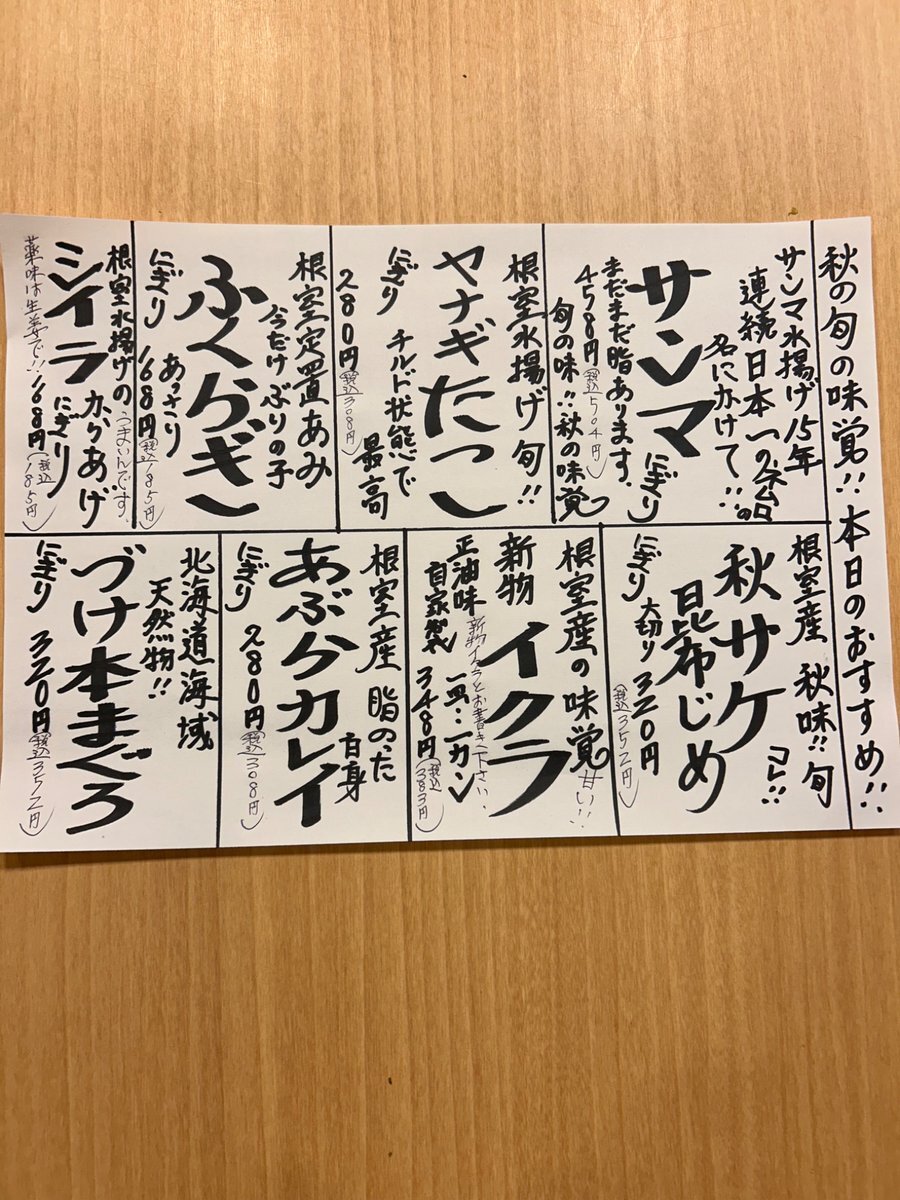 秋の旬の味覚!!本日のおすすめ!!
サンマ水揚げ15年
連続日本一のネムロの
名にかけて!!
サンマ
にぎり
まだまだ脂あります。
458円(税込504円)
旬の味!!秋の味覚
根室水揚げ旬!!
ヤナギたこ
にぎり チルド状態で
最高
280円(税込308円)
根室定置あみ
今だけぶりの子
ふくらぎ
にぎり あっさり
168円(税込185円)
根室水揚げの
うまいんです。
シイラ からあげ
にぎり
168円(税込185円)
薬味は生姜で!!
根室産 秋味!!旬
コレ!!
秋サケ
昆布じめ
にぎり 大切り 320円
(税込352円)
根室産の味覚
甘い!!
新物 イクラ
新物イクラとお書き下さい。
正油味 一皿…一カン
自家製 348円(税込383円)
根室産 脂のった
白身
あぶらカレイ
にぎり 280円(税込308円)
北海道海域
天然物!!
づけ本まぐろ
にぎり 320円(税込352円)